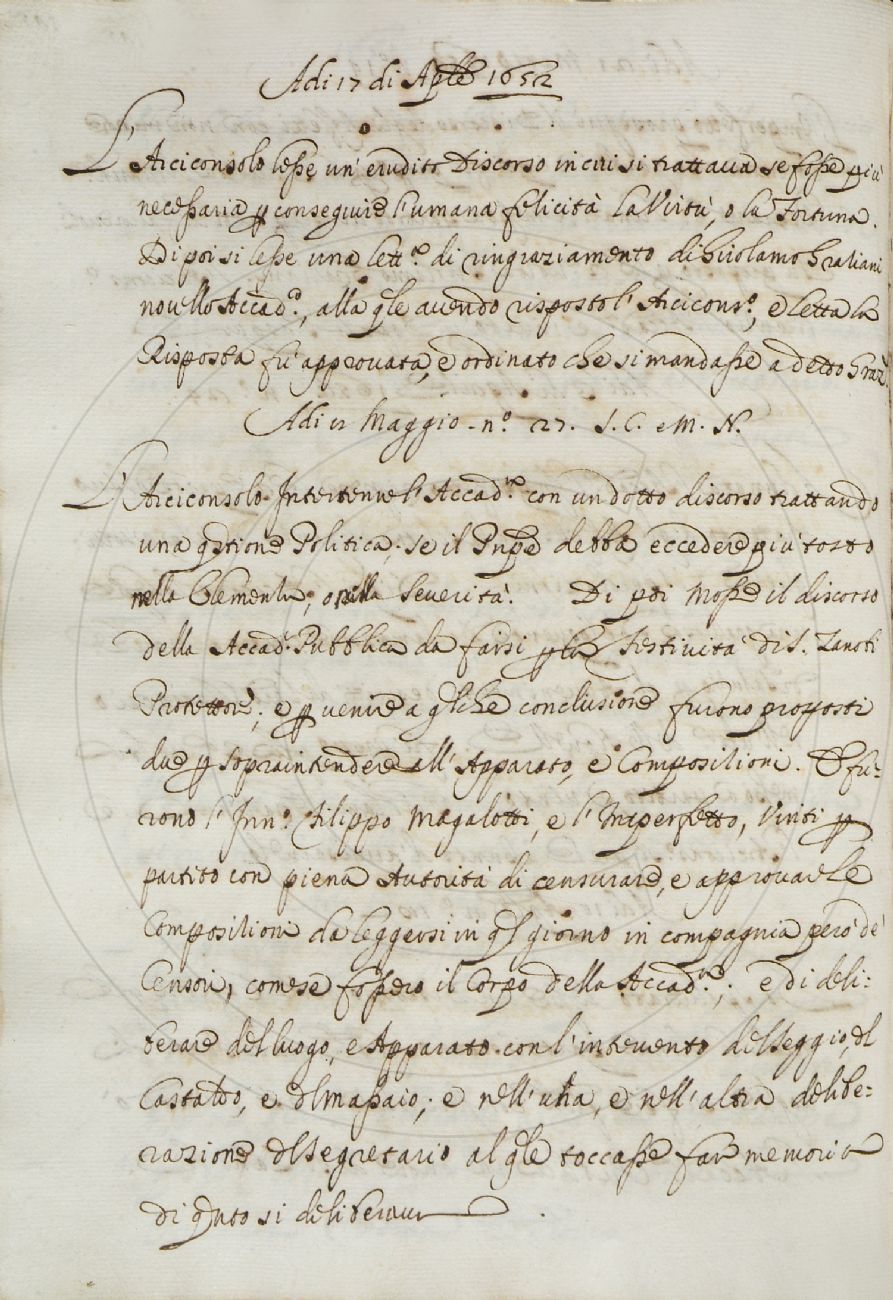 Adi 17 di Aple 1652
L'Arciconsolo lesse un' erudito Discorso in cui si trattava se fosse più
necessaria p conseguire l'umana felicità la Virtù, o la Fortuna.
Di poi si lesse una lett.ª di ringraziamento di Girolamo Gratiani
novello Accad.º, alla qle avendo risposto l'Arcicons.º, e letta la
Risposta fù approvata, e ordinato che si mandasse a detto Graz.
Adi Maggio - n.º 27. S. C. e M. N.
L'Arciconsolo Intertenne l'Accad.ª con un dotto discorso trattando
una qstione Politica, se il Pnpe debba eccedere più tosto
nella Clementia, o nella Severità. Di poi Mosse il discorso
della Accad.ª Pubblica da farsi p la Festività di S. Zanobi
Protettore; e p venire a qlche conclusione furono proposti
due p sopraintendere all'Apparato, e Compositioni. E fu-
rono l'Inn.º Filippo Magalotti, e l'Imperfetto, Vinti p
partito con piena Autorità di censurare, e approvar le
Compositioni da leggersi in ql giorno in compagnia però de'
Censori, come se fossero il Corpo della Accad.ª; e di deli=
berare del luogo, e Apparato con l'intervento del Seggio, dl
Castaldo, e dl Massaio; e nell'una, e nell'altra delibe=
razione dl Segretario al qle toccasse far memoria
di qnto si deliberava.